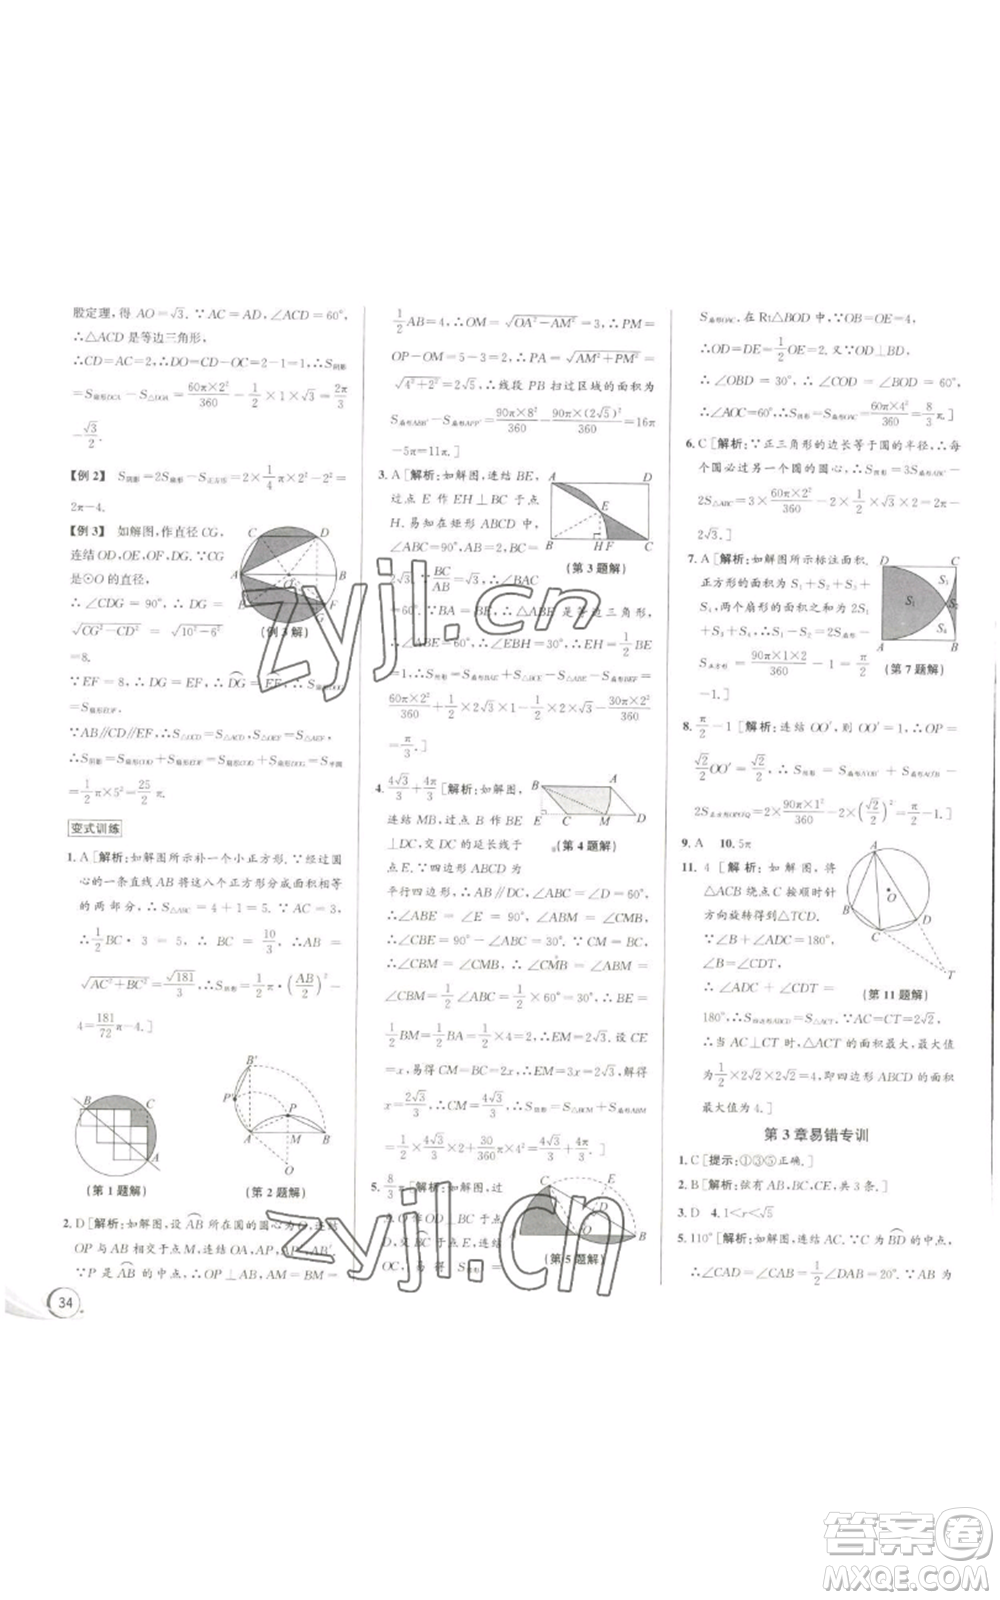 股定理,得 AO=√3. ∵AC=AD,∠CAD=60°,
∴△ACD 是等边三角形,
∴CD=AC=2,∴DO=CD-OC=2-1=1,∴S阴影
=S扇形DCA-S△DOA=60π×2²/360-1/2×1×√3=2π/3
-√3/2.
【例 2】 S阴影=2S扇形-S正方形=2×1/4π×2²-2²=
2π-4.
【例 3】 如解图,作直径 CG,
连结 OD,OE,OF,DG. ∵CG
是⊙O 的直径,
∴∠CDG=90°,∴DG=
√CG²-CD²=√10²-6²
=8.
(例 3 解)
∵EF=8,∴DG=EF,∴DG=EF,∴S扇形ODG
=S扇形EOF.
∵AB//CD//EF,∴S△OCD=S△ACD,S△OEF=S△AEF,
∴S阴影=S扇形COD+S扇形EOF=S扇形COD+S扇形DOG=S半圆
=1/2π×5²=25/2π.
变式训练
1. A [解析:如解图所示补一个小正方形. ∵经过圆
心的一条直线 AB 将这八个正方形分成面积相等
的两部分,∴S△ABC=4+1=5. ∵AC=3,
∴1/2BC·3=5,∴BC=10/3,∴AB=
√AC²+BC²=√181/3,∴S阴影=1/2π×(AB/2)²
-4=181/72π-4.]
B C A
(第 1 题解)
B′ P′ P A M B O
(第 2 题解)
2. D [解析:如解图,设 AB 所在的圆的圆心为 O,连结
OP 与 AB 交于点 M,连结 OA,AP,AP′,OB.
∵P 是 AB 的中点,∴OP⊥AB,AM=BM=
34
1/2AB=4,∴OM=√OA²-AM²=3,∴PM=
OP-OM=2,∴PA=√AM²+PM²=
√4²+2²=2√5,∴线段 PB 扫过区域的面积为
S扇形ABB′-S扇形APP′=90π×8²/360-90π×(2√5)²/360=16π
-5π=11π.]
3. A [解析:如解图,连结 BE,
过点 E 作 EH⊥BC 于点
H. 易知在矩形 ABCD 中,
∠ABC=90°,AB=2,BC=
2√3,∴BC/AB=√3,∴∠BAC
A D E B H F C
(第 3 题解)
=60°. ∵BA=BE,∴△ABE 是等边三角形,
∴∠ABE=60°,∴∠EBH=30°,∴EH=1/2BE
=1,∴S阴影=S扇形ABE-S△ABE+S△BCE-S扇形BEF=
60π×2²/360-1/2×2×√3+1/2×2√3×1-30π×2²/360=
π/3.]
4. 4√3/3+4π/3 [解析:如解图,
连结 BM,过点 B 作 BE
⊥DC,交 DC 的延长线于
点 E. ∵四边形 ABCD 为
B A E C M D
(第 4 题解)
平行四边形,∴AB//DC,∴∠BCE=∠ABC=60°,
∴∠ABE=90°,∠ABM=∠CMB,
∴∠CBE=90°-60°=30°. ∵BA=BM=4,
∴∠CBM=∠ABM,∴∠CBM=
∠CBM=1/2∠ABM=1/2×60°=30°,∴BE=
1/2BM=1/2BA=1/2×4=2,∴EM=2√3. 设 CE=
x,易得 CM=BC=2x,∴x+2x=2√3,解得 x=
2√3/3,∴CM=4√3/3,∴S阴影=1/2×4√3/3×2+
60π×4²/360=4√3/3+4π/3.]
5. 8/3π [解析:如解图,过
点 O 作 OD⊥BC 于点
D,交 BC 于点 E,连结
OC,易得 S阴影=
C E D A O B
(第 5 题解)
S扇形OAC. 在 Rt△BOD 中,∵OB=OE=4,
∴OD=DE=1/2×4=2. 又∵OD⊥BC,
∴∠OBD=30°,∴∠COE=∠BOD=60°,
∴∠AOC=60°,∴S阴影=S扇形OAC=60π×4²/360=8/3π.]
6. C [解析:∵正三角形的边长等于圆的半径,∴每
个圆必过另一个圆的圆心,∴S阴影=3S扇形-
2S△=3×60π×2²/360-2×1/2×2×√3=2π-
2√3.]
7. A [解析:如解图所示标注面积,
正方形的面积为 S₁+S₂+S₃
+S₄,两个扇形的面积和为 2S₁
+S₃+S₄,∴S₁-S₂=2S扇形-
S正方形=90π×1×2/360-1×1=π/2
-1.]
D C S₃ S₁ S₂ S₄ A B
(第 7 题解)
8. π/2-1 [解析:连结 OO′,则 OO′=1,∴OP=
√2/2OO′=√2/2,∴S阴影=2S扇形
2S正方形OPO′Q=2×90π×1²/360-2×(√2/2)²=π/2-1.]
9. A 10. 5π
11. 4 [解析:如解图,将
△ACB 绕点 C 按顺时针
方向旋转得到△TCD.
∵∠B+∠ADC=180°,
∠B=∠CDT,
∴∠ADC+∠CDT=
A B O D C T
(第 11 题解)
180°,∴S四边形ABCD=S△ACT. ∵AC=CT=2√2,
∴当 AC⊥CT 时,△ACT 的面积最大,最大值
为1/2×2√2×2√2=4,即四边形 ABCD 的面积
最大值为 4.]
第 3 章易错专训
1. C [提示:①③⑤正确.]
2. B [解析:弦有 BC,AB,CE,共 3 条.]
3. D 4. 1<r<√5
5. 110° [解析:如解图,连结 AC. ∵C 为 BD 的中点,
∴∠CAD=∠CAB=1/2∠DAB=20°. ∵四边形
zyjl.cn
zyjl.cn
答案圈
MXQE.COM